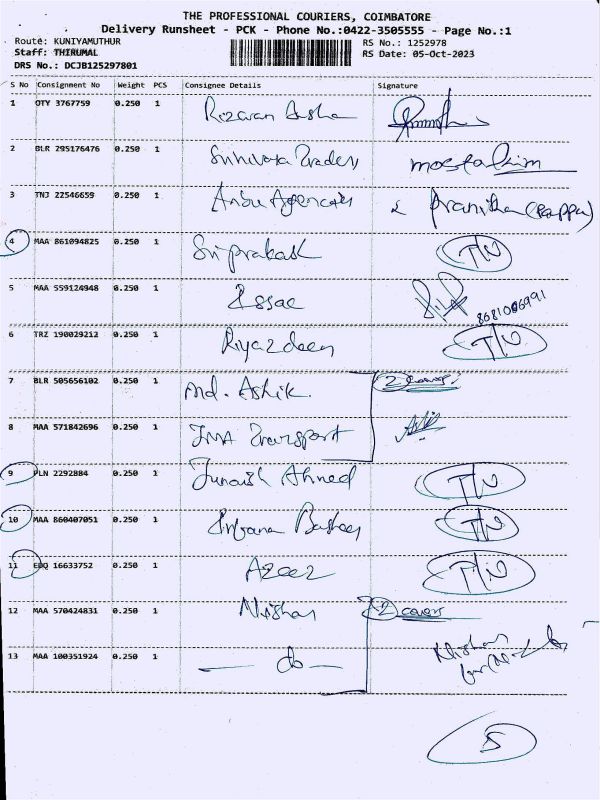 THE PROFESSIONAL COURIERS, COIMBATORE
Delivery Runsheet - PCK - Phone No.:0422-3505555 - Page No.:1
Route: KUNIYAMUTHUR RS No.: 1252978
Staff: THIRUMAL RS Date: 05-Oct-2023
DRS No.: DCJB125297801
S No Consignment No Weight PCS Consignee Details Signature
1 OTY 3767759 0.250 1
2 BLR 295176476 0.250 1
3 TNJ 22546659 0.250 1 Agencies
4 MAA 861094825 0.250 1 Sri prakash
5 MAA 559124948 0.250 1 Essae
6 TRZ 190029212 0.250 1 Riyazdeen
7 BLR 505656102 0.250 1 Md. Ashik. 2 covers
8 MAA 571842696 0.250 1 Transport
9 PLN 2292884 0.250 1 Ahmed
10 MAA 860407051 0.250 1
11 EDQ 16633752 0.250 1 Azeez
12 MAA 570424831 0.250 1 Nishar 2 covers
13 MAA 100351924 0.250 1 do Nishar
5